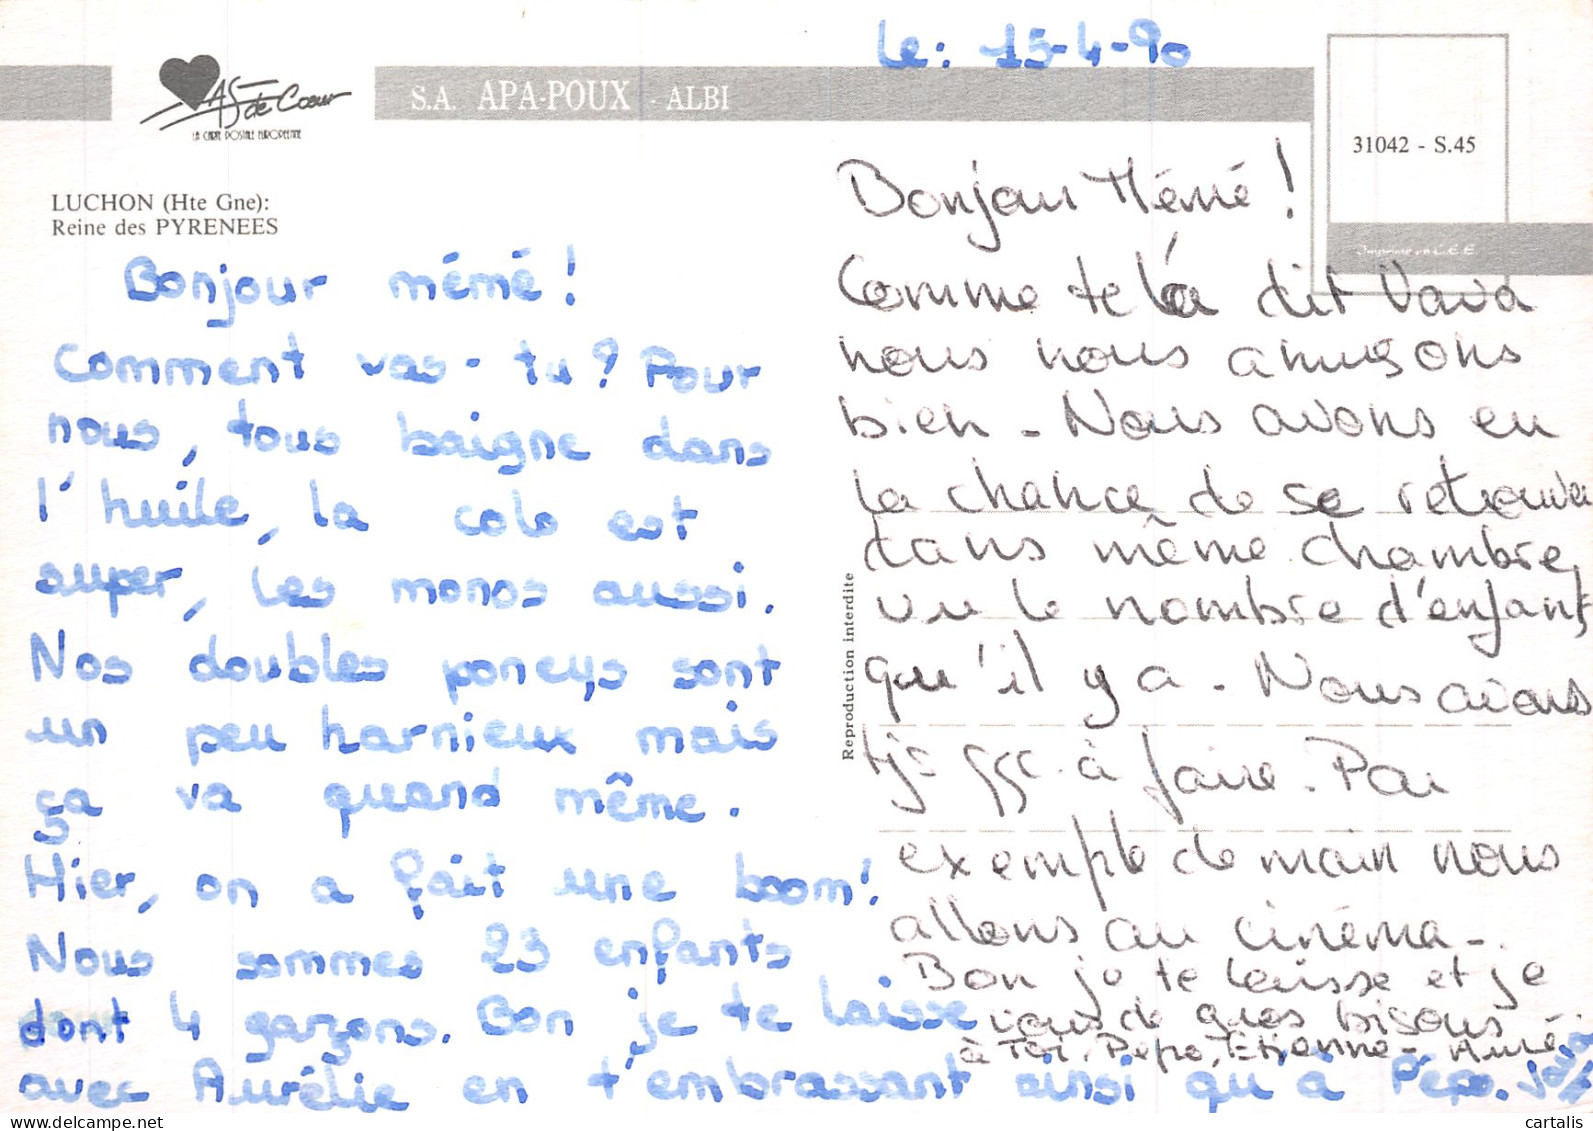 Le: 15-4-90
AS de Coeur
LA CARTE POSTALE EUROPEENNE
S.A. APA-POUX - ALBI
31042 - S.45
Imprimé en C.E.E
LUCHON (Hte Gne):
Reine des PYRENEES
Bonjour mémé!
Comment vas-tu? Pour
nous, tous baigne dans
l'huile, la colo est
super, les monos aussi.
Nos doubles poneys sont
un peu harnieux mais
ça va quand même.
Hier, on a fait une boom!
Nous sommes 23 enfants
dont 4 garzons. Bon je te laisse
avec Aurélie en t'embrassant ainsi qu'a Pépo.
Reproduction interdite
Bonjour Mémé!
Comme te l'a dit Vava
nous nous amusons
bien - Nous avons eu
la chance de se retrouver
dans même chambre,
vu le nombre d'enfants
qu'il y a - Nous avons
à faire. Par
exemple demain nous
allons au cinéma -
Bon je te laisse et je
vous de gros bisous
à Toi, Pépo, Etienne - Auré